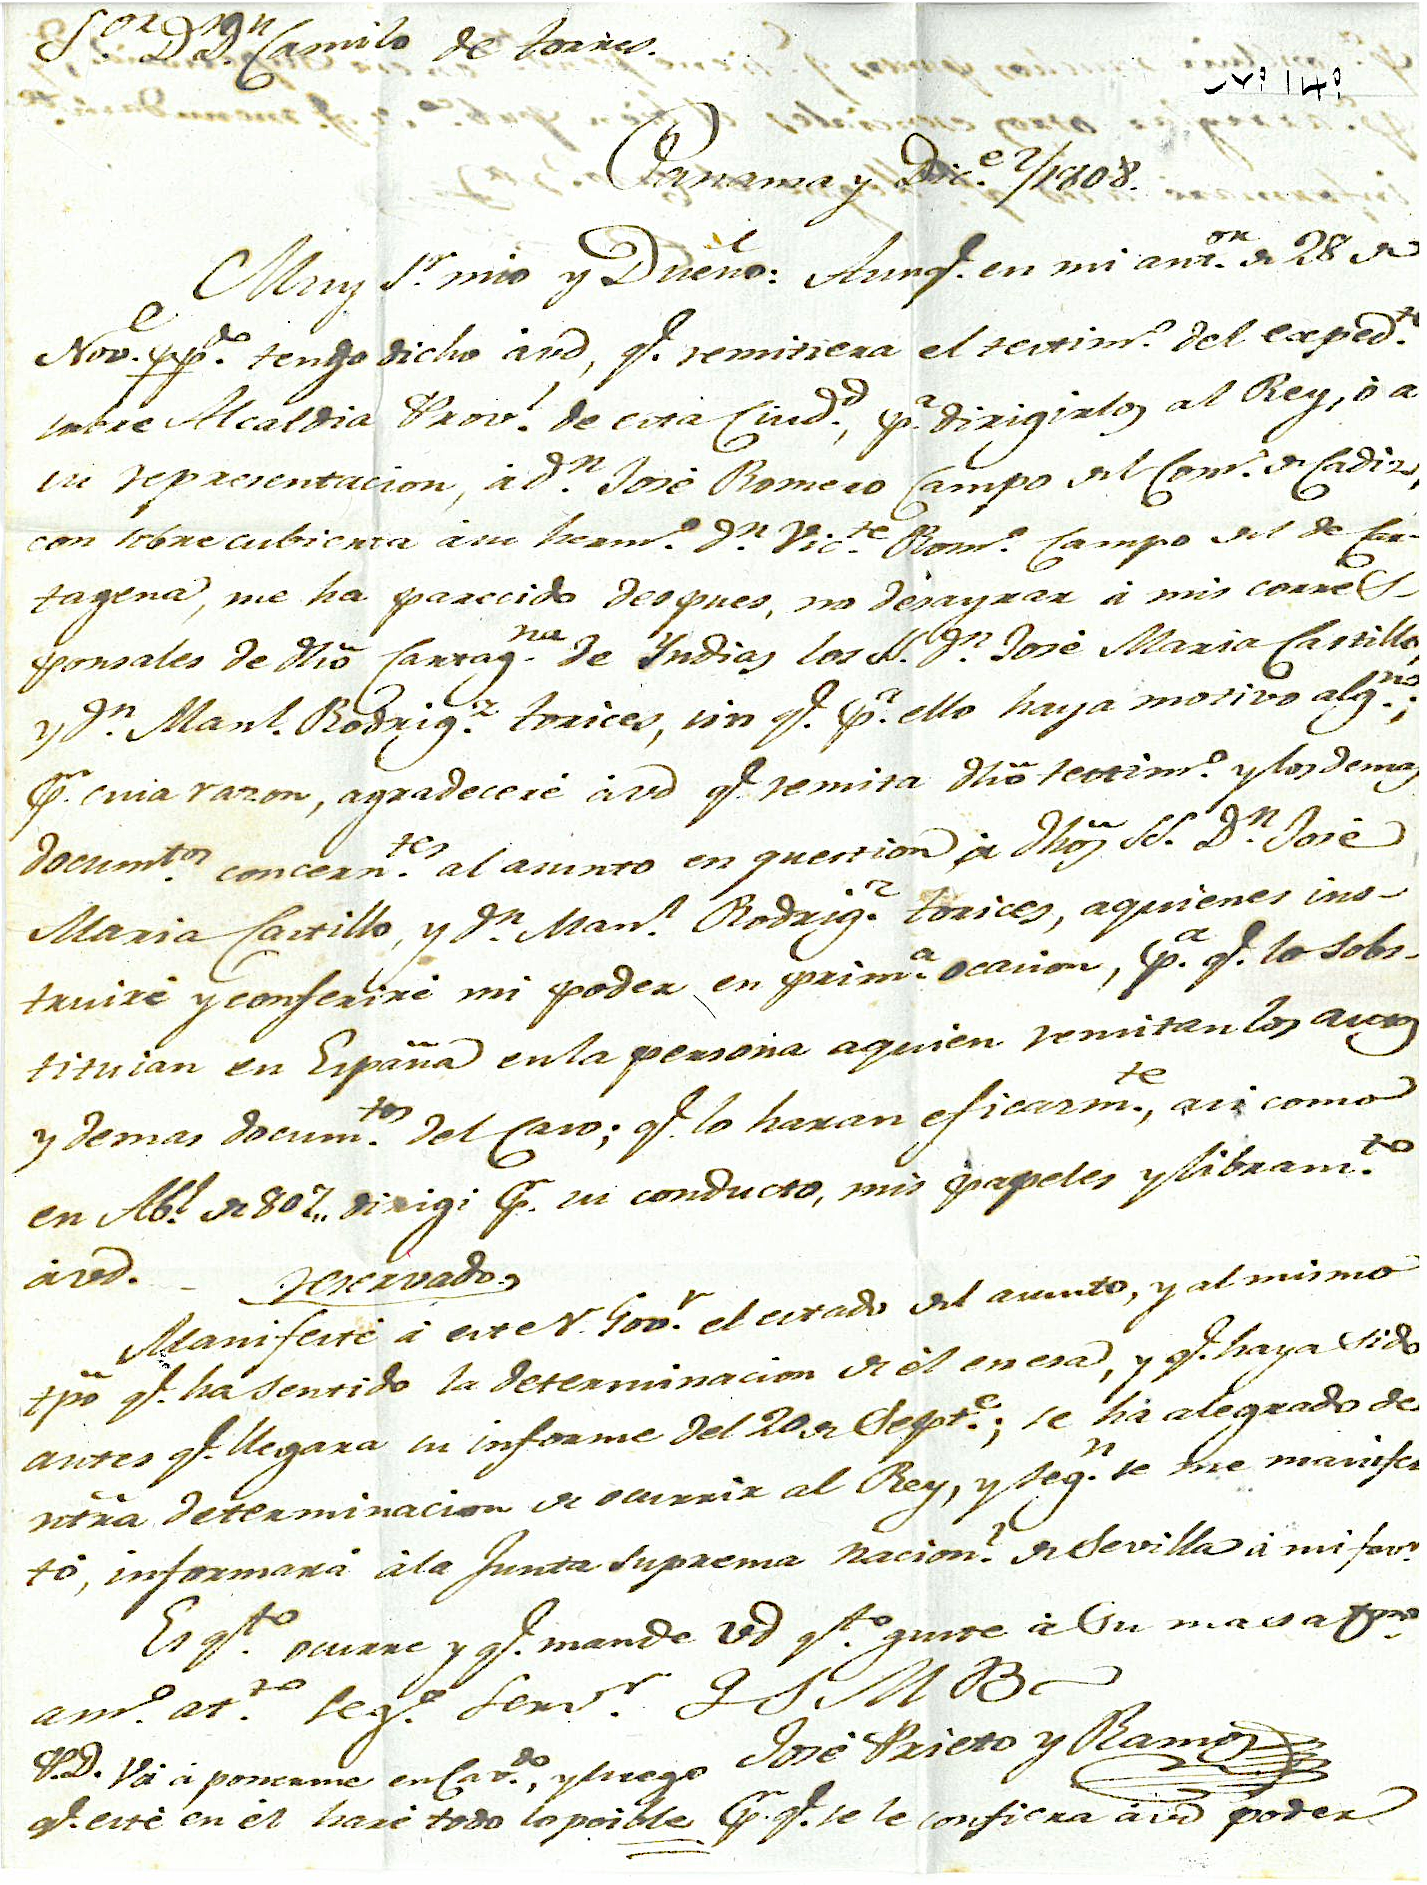 Sor. Dn. Dn. Camilo de Torres.
No. 14.
Panama y Dice. 2/1808.
Muy Sr. mio y Dueño: Aunq. en mi antor. de 28 de
Nove. ppdo. tengo dicho à vd, q. remitiera el testimo. del expedte.
sobre Alcaldia Provl. de esta Ciudd., pa. dirigirlos al Rey, ò a
su representacion, à dn. José Romero Campo del Como. de Cadiz,
con sobrecubierta à su hermo. dn. Victe. Romo. Campo del de Car-
tagena, me ha parecido despues, no desayrar à mis corres-
ponsales de dho Cartagna. de Yndias los SS. dn. José Maria Castillo,
y dn. Manl. Rodrigz. Torices, sin q. pa. ello haya motivo algno.;
Pr. cuia razon, agradeceré à vd q. remita dho testimo. y los demas
documtos. concerntes. al asunto en question à dhos SS. Dn. José
Maria Castillo, y dn. Manl. Rodrigz. Torices, aquienes ins-
truiré y conferiré mi poder en prima. ocasion, pa. q. lo sobs-
tituian en España en la persona aquien remitan los autos
y demas documtos. del Caso; q. lo haran eficazmte., asi como
en Abl. de 807,, dirigi pr. su conducto, mis papeles y libramto.
à vd. - reservado,
Manifesté à este Sr. Govr. el estado del asunto, y al mismo
tpo q. ha sentido la determinacion de él en esa, y q. haya sido
antes q. llegara su informe del 20 de Septe.; se ha alegrado de
ntra determinacion de ocurrir al Rey, y segn. se me manifes
tó, informará à la Junta Suprema Nacionl. de Sevilla à mi favr.
Es qto. ocurre y q. mande vd qto. guste à Su mas apto.
amo. atto. Sego. Servr. Q S M B
José Prieto y Ramos
P.D. Voi à ponerme en Cavdo., y luego
q. esté en él haré todo lo posible pr. q. se le confiera à vd poder